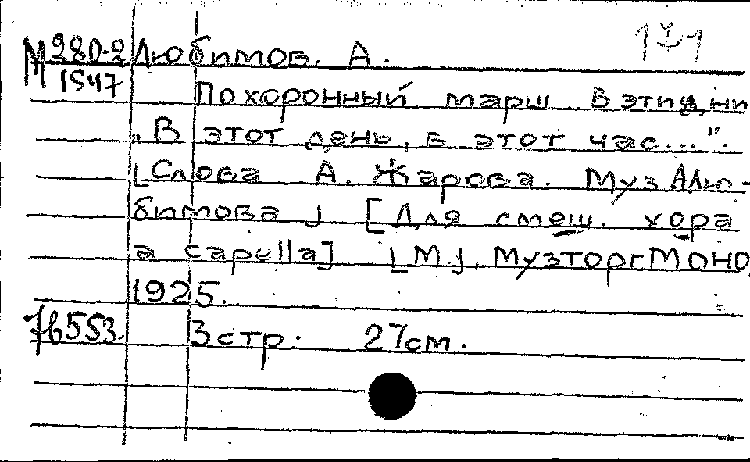 М 280-2 Любимов. А. 
1547 Похоронный марш. В эти дни
„В этот день, в этот час...".
[Слова А. Жарова. Муз А Лю-
бимова] [Для смеш. хора
a capella] [М], Музторг МОНО
1925.
76553. 3 стр. 27 см.